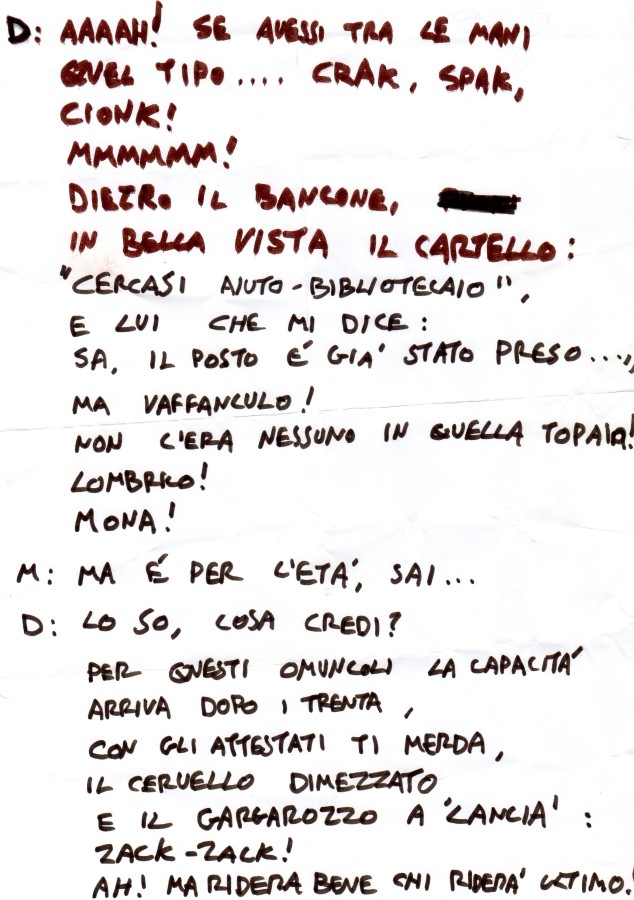 D: AAAAH! SE AVESSI TRA LE MANI
QUEL TIPO.... CRAK, SPAK,
CIONK!
MMMMMM!
DIETRO IL BANCONE,
IN BELLA VISTA IL CARTELLO:
"CERCASI AIUTO-BIBLIOTECAIO",
E LUI CHE MI DICE:
SA, IL POSTO É GIA' STATO PRESO....,
MA VAFFANCULO!
NON C'ERA NESSUNO IN QUELLA TOPAIA!
LOMBRICO!
MONA!
M: MA É PER L'ETA', SAI...
D: LO SO, COSA CREDI?
PER QUESTI OMUNCOLI LA CAPACITA'
ARRIVA DOPO I TRENTA,
CON GLI ATTESTATI TI MERDA,
IL CERVELLO DIMEZZATO
E IL GARGAROZZO A 'LANCIA':
ZACK-ZACK!
AH! MA RIDERA BENE CHI RIDERA' ULTIMO!